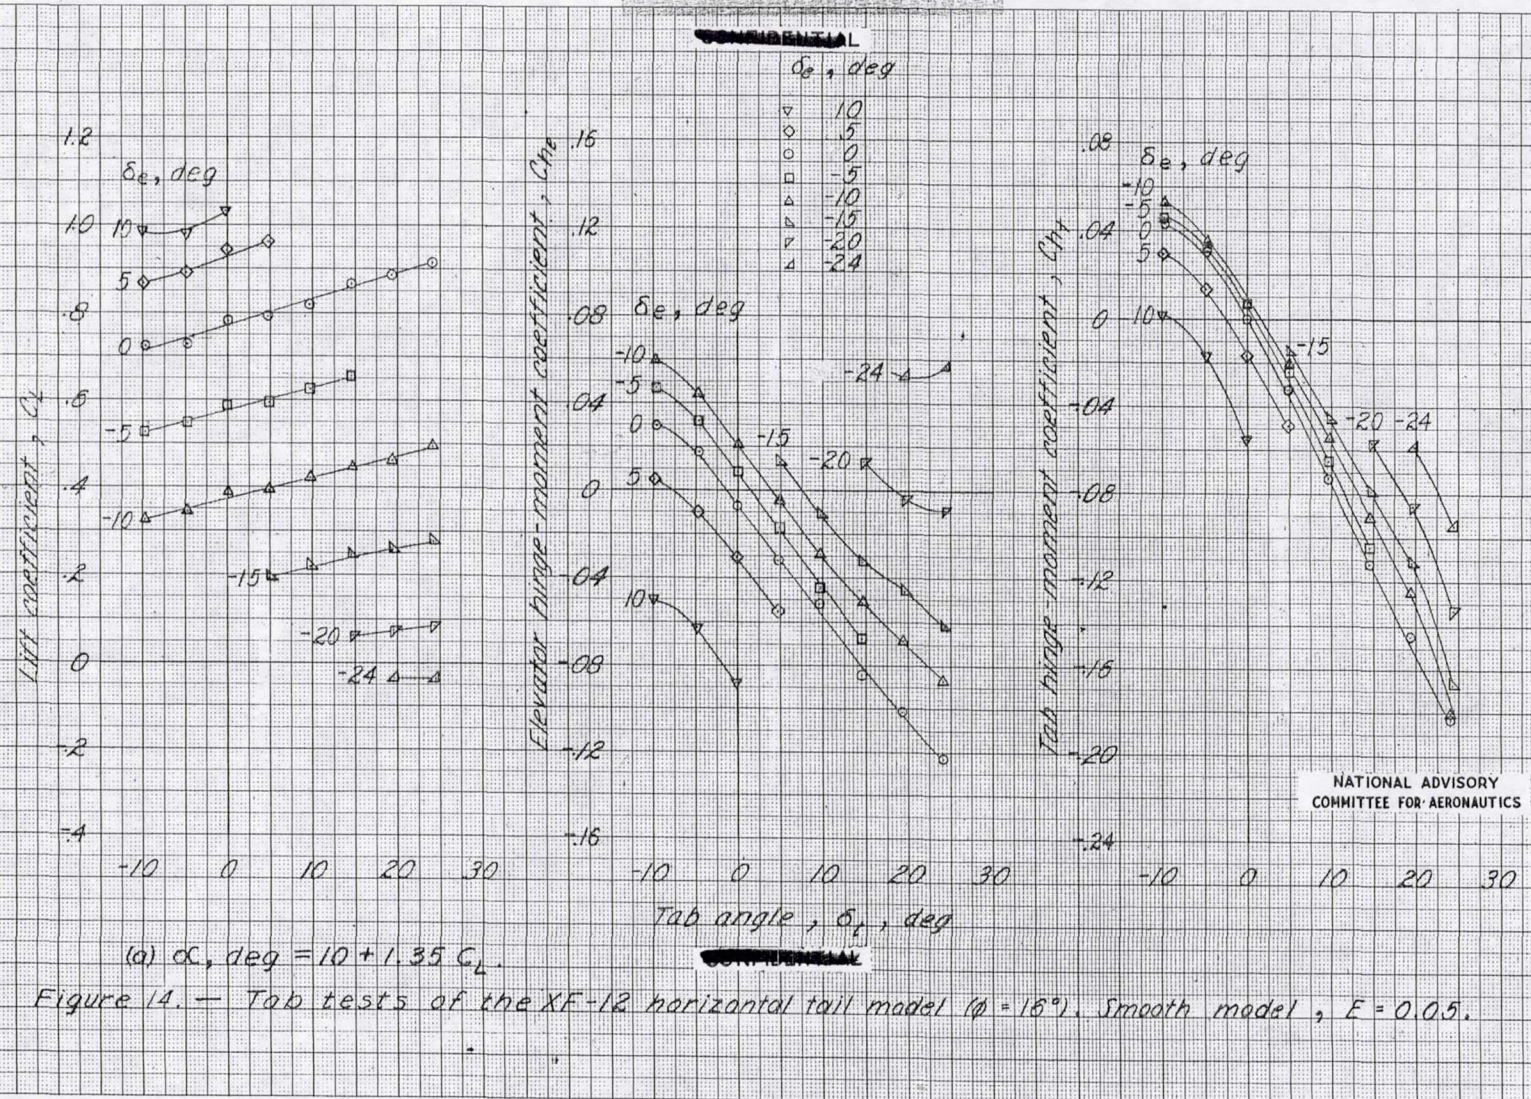 CONFIDENTIAL
δe, deg
10
5
0
-5
-10
-15
-20
-24
Lift coefficient, CL
1.2
1.0
.8
.6
.4
.2
0
-.2
-.4
δe, deg
10
5
0
-5
-10
-15
-20
-24
-10 0 10 20 30
Elevator hinge-moment coefficient, Che
.16
.12
.08
.04
0
-.04
-.08
-.12
-.16
δe, deg
-10
-5
0
5
10
-15
-20
-24
-10 0 10 20 30
Tab hinge-moment coefficient, Cht
.08
.04
0
-.04
-.08
-.12
-.16
-.20
-.24
δe, deg
-10
-5
0
5
-10
-15
-20 -24
-10 0 10 20 30
NATIONAL ADVISORY
COMMITTEE FOR AERONAUTICS
Tab angle, δt, deg
(a) α, deg = 10 + 1.35 CL.
CONFIDENTIAL
Figure 14. — Tab tests of the XF-12 horizontal tail model (φ = 16°). Smooth model, E = 0.05.